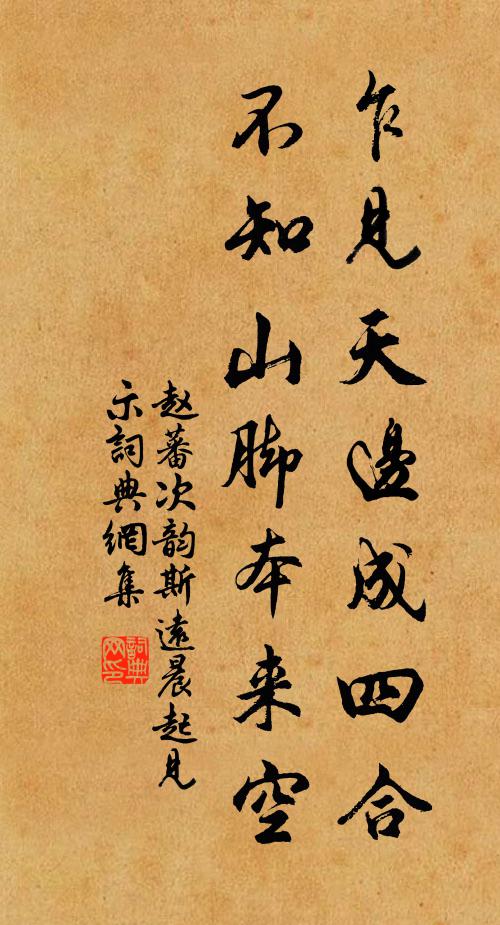 乍見天邊成四合
不知山脚本来空
赵蕃次韵斯遠晨起見
示詞典網集
詞典网印